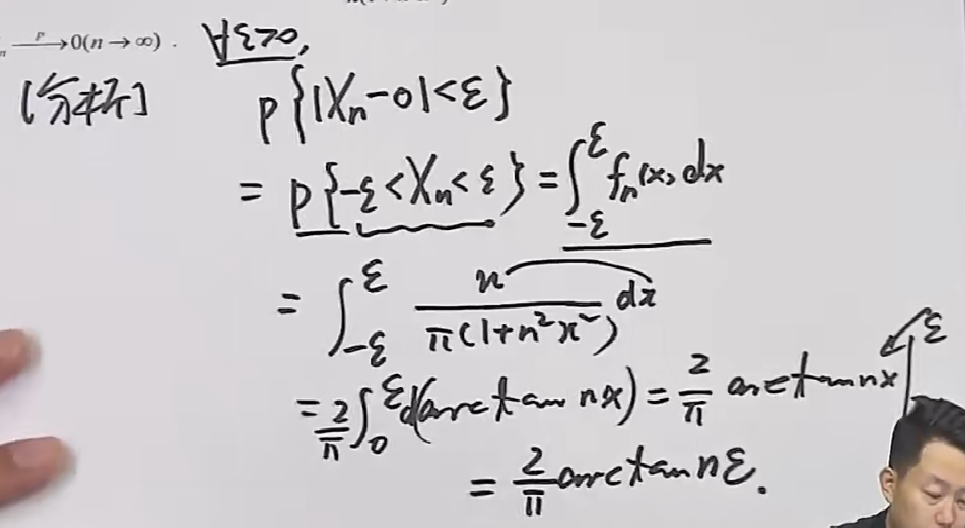 n —P→ 0(n→∞). ∀ε>0,
[分析] P{|Xₙ-0|<ε}
= P{-ε<Xₙ<ε} = ∫_{-ε}^{ε} fₙ(x)dx
= ∫_{-ε}^{ε} n/(π(1+n²x²)) dx
= 2/π ∫_0^ε d(arctan nx) = 2/π arctan nx |^ε
= 2/π arctan nε.